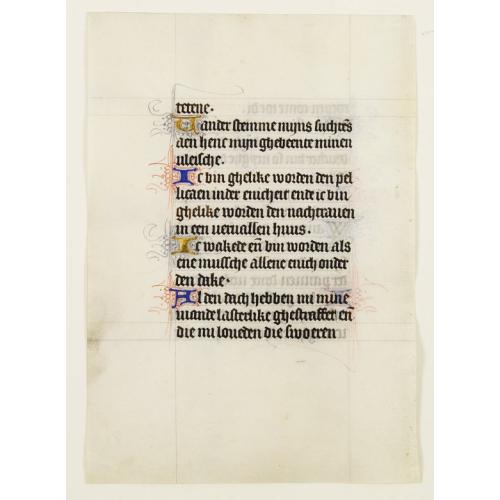 tetene.
Uander stemme mijns suchtēs
aen henc mijn ghebeente minen
uleische.
Ic bin ghelike worden den pel
licaen inder enicheit ende ic bin
ghelike worden den nachtrauen
in een veruallen huus.
Ic wakede eñ bin worden als
ene mussche allene enich onder
den dake.
Al den dach hebben mi mine
viande lasterlike ghestraffet eñ
die mi loueden die swoeren